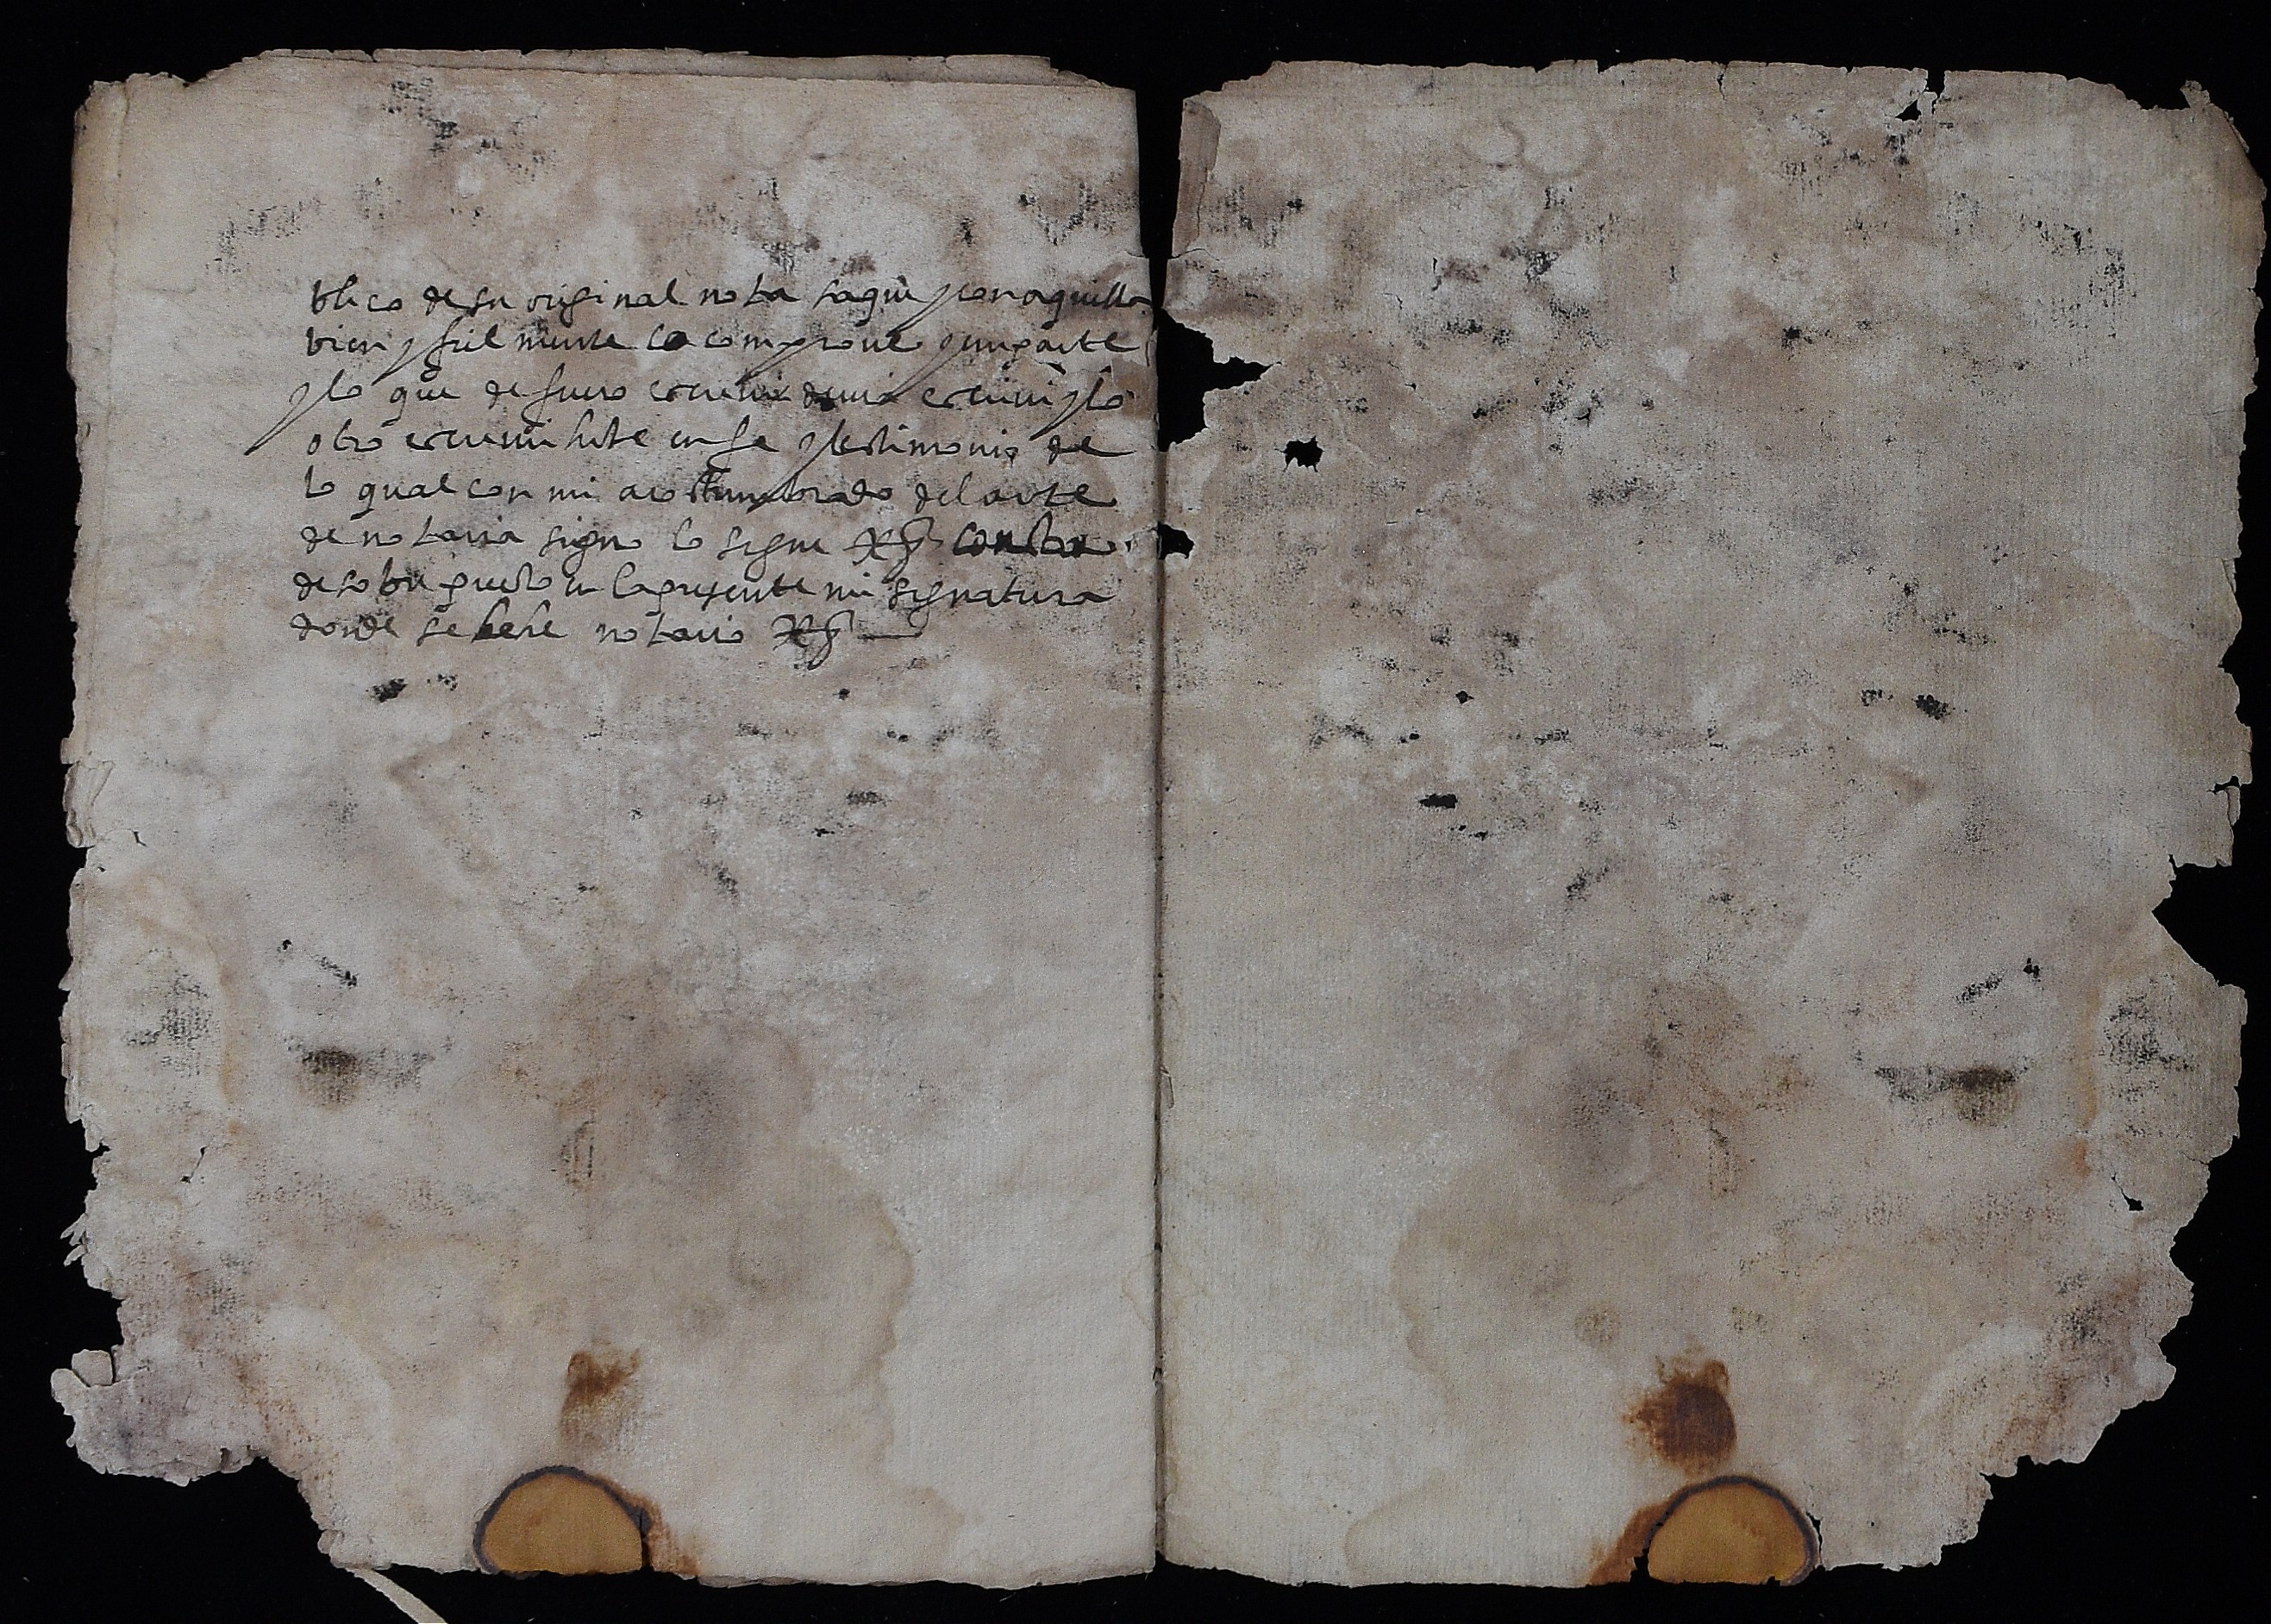 blico de su original nota saque y con aquella
bien y fielmente la comprove y en parte
y lo que de fuero escrivi devia escrivi y lo
otro escrivi hize en fe y testimonio de
lo qual con mi acostumbrado del arte
de notaria signo lo signe consta
de sobre puesto en la presente mi signatura
donde se lehe notario